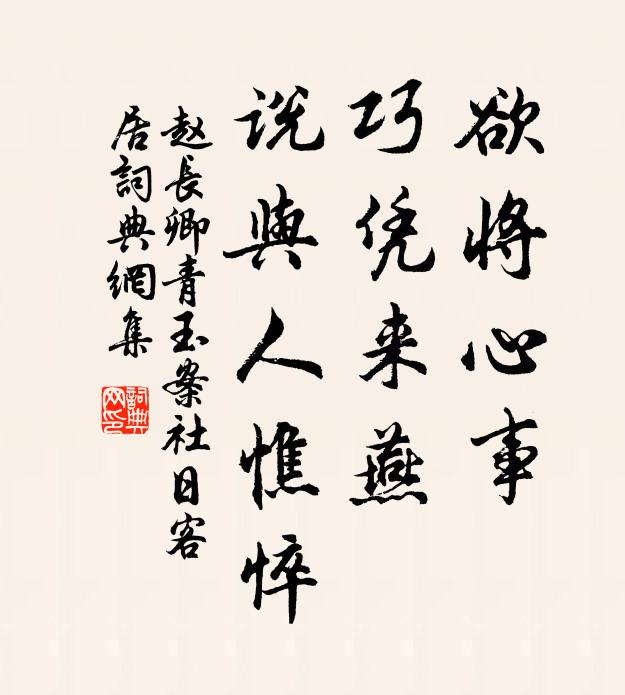 欲将心事
巧凭来燕
说与人憔悴
赵长卿青玉案社日客
居词典网集
词典网印